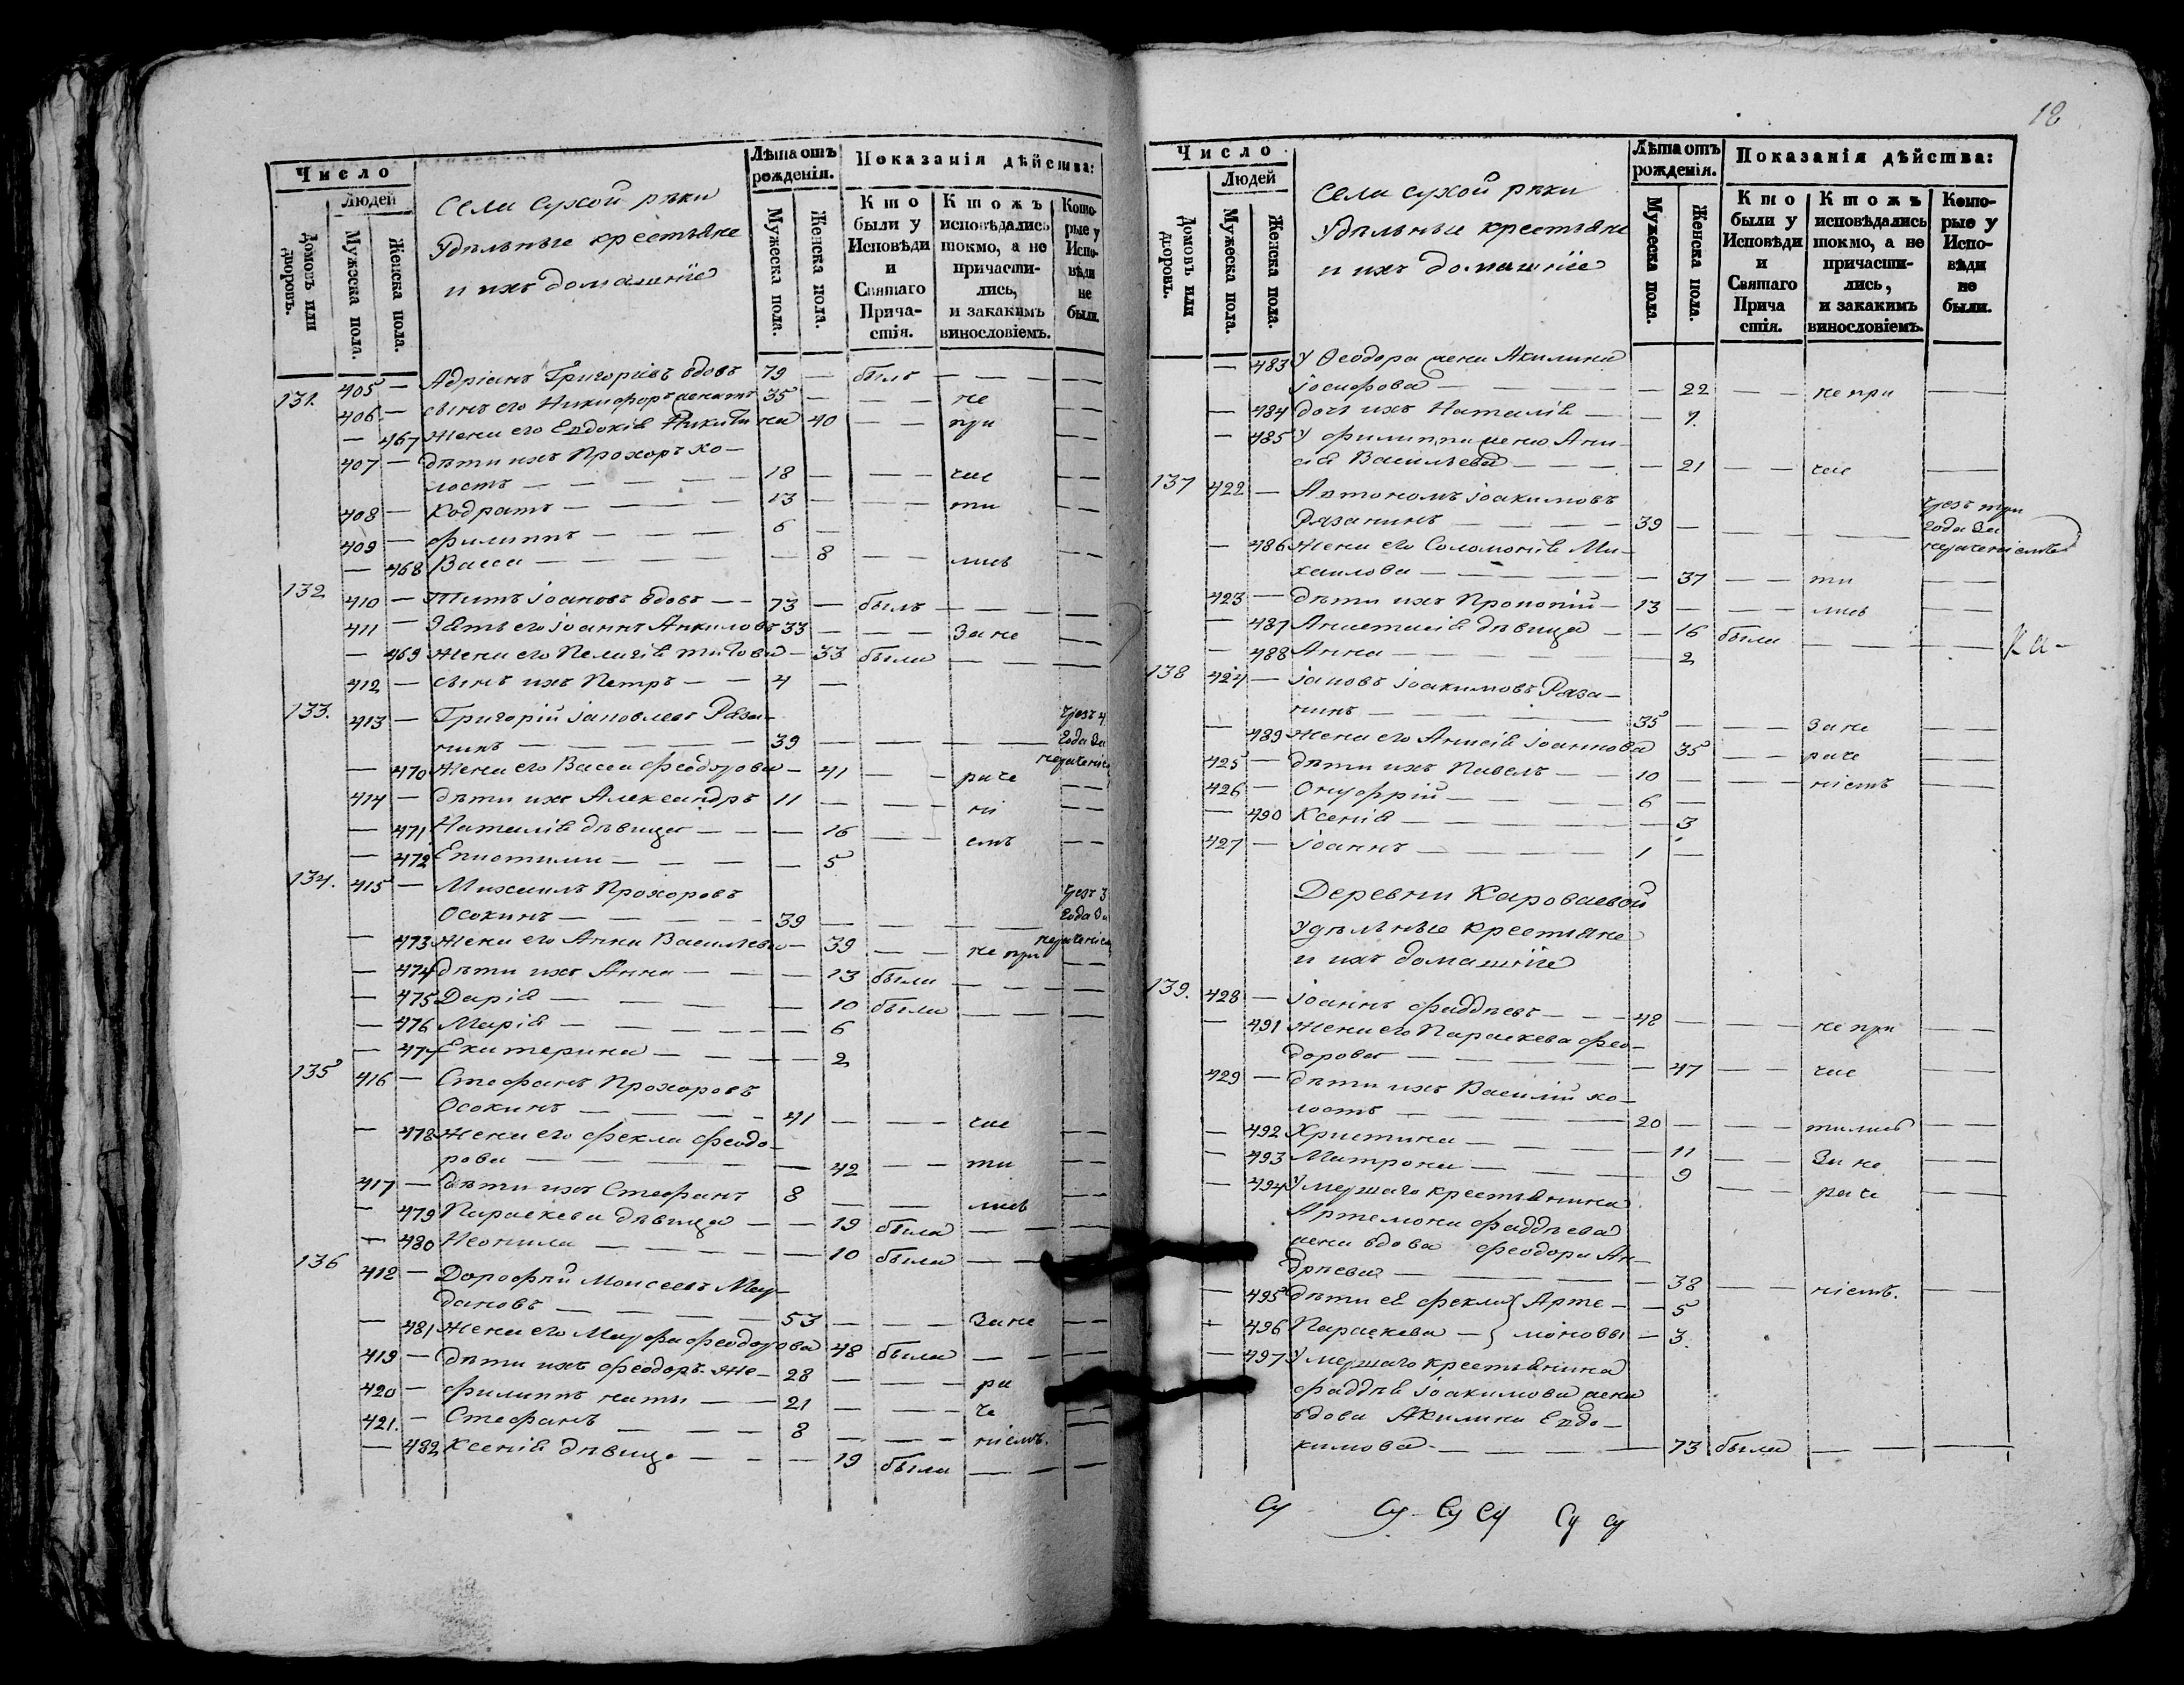 Число
Людей
Домовъ или дворовъ.
Мужеска пола.
Женска пола.
Села Сухой рѣки
Удѣльные крестьяне
и ихъ домашніе
Лѣта отъ рожденія.
Мужеска пола.
Женска пола.
Показанія дѣйства:
Кто были у Исповѣди и Святаго Причастія.
Ктожъ исповѣдались токмо, а не причастились, и закакимъ винословіемъ.
Которые у Исповѣди не были.
131. 405 — Адріанъ Григоріевъ вдовъ 79 — былъ — — —
406 — сынъ его Никифоръ женатъ 35 — — — не
— 467 Жена его Евдокія Никитина 40 — — при — —
407 — дѣти ихъ Прохоръ хо-
лостъ — — — — — 18 — — — час — —
408 — Кодратъ — — — 13 — — — ти — —
409 — Филиппъ — — — 6 —
— 468 Васса — — — — 8 — — лись — —
132 410 — Титъ Іаковъ вдовъ — — 73 — былъ — — —
411 — Зять его Іоаннъ Акиловъ 33 — — — За не — —
— 469 Жена его Пелагія Титова — 33 была — — —
412 — сынъ ихъ Петръ — — 4 —
133. 413 — Григорій Іаковлевъ Ряза-
нинъ — — — — 39 — — — — чрезъ 4 года за нераченіе
— 470 Жена его Васса Феодорова — 41 — — раче — —
414 — дѣти ихъ Александръ 11 — — — ні — —
— 471 Наталія дѣвица — — — 16 — — емъ — —
— 472 Епистимія — — — — 5
134. 415 — Михаилъ Прохоровъ
Осокинъ — — — — 39 — — — — чрезъ 3 года за нераченіе
— 473 Жена его Анна Васильева — 39 — — не при — —
— 474 дѣти ихъ Анна — — — 13 была — — —
— 475 Дарія — — — — 10 была — — —
— 476 Марія — — — — — 6
— 477 Екатерина — — — — 2
135 416 — Стефанъ Прохоровъ
Осокинъ — — — — 41 — — — час — —
— 478 Жена его Фекла Феодо-
рова — — — — 42 — — ти — —
417 — дѣти ихъ Стефанъ 8 — — лись — —
— 479 Параскева дѣвица — — 19 была — — —
— 480 Неонила — — — — 10 была — — —
136 418 — Дорофѣй Моисеевъ Мау-
дановъ — — — — 53 — — — За не — —
— 481 Жена его Марфа Феодорова 48 была — — —
419 — дѣти ихъ Феодоръ же- 28 — — — ра
420 — Филиппъ наты — — 21 — — — че — —
421. — Стефанъ — — — 8 — — — ніемъ.
— 482 Ксенія дѣвица — — — 19 была — — —
18
Число
Людей
Домовъ или дворовъ.
Мужеска пола.
Женска пола.
Села Сухой рѣки
Удѣльные крестьяне
и ихъ домашніе
Лѣта отъ рожденія.
Мужеска пола.
Женска пола.
Показанія дѣйства:
Кто были у Исповѣди и Святаго Прича стія.
Ктожъ исповѣдались токмо, а не причастились, и закакимъ винословіемъ.
Которые у Исповѣди не были.
— 483 У Феодора жена Акилина
Іосифова — — — — 22 — — не при —
— 484 дочь ихъ Наталія — — 7.
— 485 У Филиппа жена Ани-
сія Васильева — — — — 21 — — час —
137 422 — Автономъ Іоакимовъ
Рязанинъ — — — — 39 — — — — чрезъ три года за нераченіемъ
— 486 Жена его Соломонія Ми-
хаилова — — — — 37 — — ти — —
423 — дѣти ихъ Прокопій — 13 — — — лись — —
— 487 Анастасія дѣвица — — 16 была — — —
— 488 Анна — — — — 2
138 424 — Іаковъ Іоакимовъ Ряза-
нинъ — — — — 35 — — — За не — —
— 489 Жена его Анисія Іоаннова 35 — — раче — —
425 — дѣти ихъ Павелъ — — 10 — — — ніемъ — —
426 — Онуфрій — — — 6 —
— 490 Ксенія — — — — 3
427 — Іоаннъ — — — — 1 —
Деревни Короваевой
Удѣльные крестьяне
и ихъ домашніе
139. 428 — Іоаннъ Фаддѣевъ — — — 48 — — — не при — —
— 491 Жена его Параскева Фео-
дорова — — — — 47 — — час —
429 — дѣти ихъ Василій хо-
лостъ — — — — 20 — — — тились — —
— 492 Христина — — — — 11 — — За не — —
— 493 Матрона — — — 9 — — раче — —
— 494 Умершаго крестьянина
Артемона Фаддѣева
жена вдова Феодора Ан-
дреева — — — — 38 — — ніемъ. — —
— 495 дѣти ея Фекла } Арте- — 5
— 496 Параскева — } моновы — 3.
— 497 Умершаго крестьянина
Фаддѣя Іоакимова жена
вдова Акилина Евдо-
кимова — — — — 73 была — —
Су Су Су Су Су Су